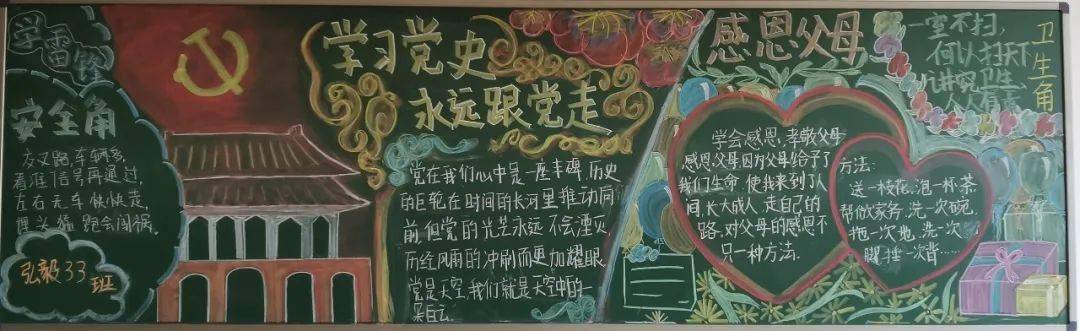 学雷锋
安全角
交叉路,车辆多,
看准信号再通过,
左右无车快快走,
埋头猛跑会闯祸。
弘毅33班
学习党史
永远跟党走
党在我们心中是一座丰碑,历史
的巨轮在时间的长河里推动向
前,但党的光芒永远不会湮灭,
历经风雨的冲刷而更加耀眼
党是天空,我们就是天空中的一
朵白云
感恩父母
学会感恩,孝敬父母
感恩父母因为父母给予了
我们生命,使我来到了人
间,长大成人,走自己的
路,对父母的感恩不
只一种方法.
方法:
送一枝花,泡一杯茶
帮做家务,洗一次碗,
拖一次地,洗一次
脚,捶一次背……
卫生角
一室不扫,
何以扫天下
讲究卫生
人人有责